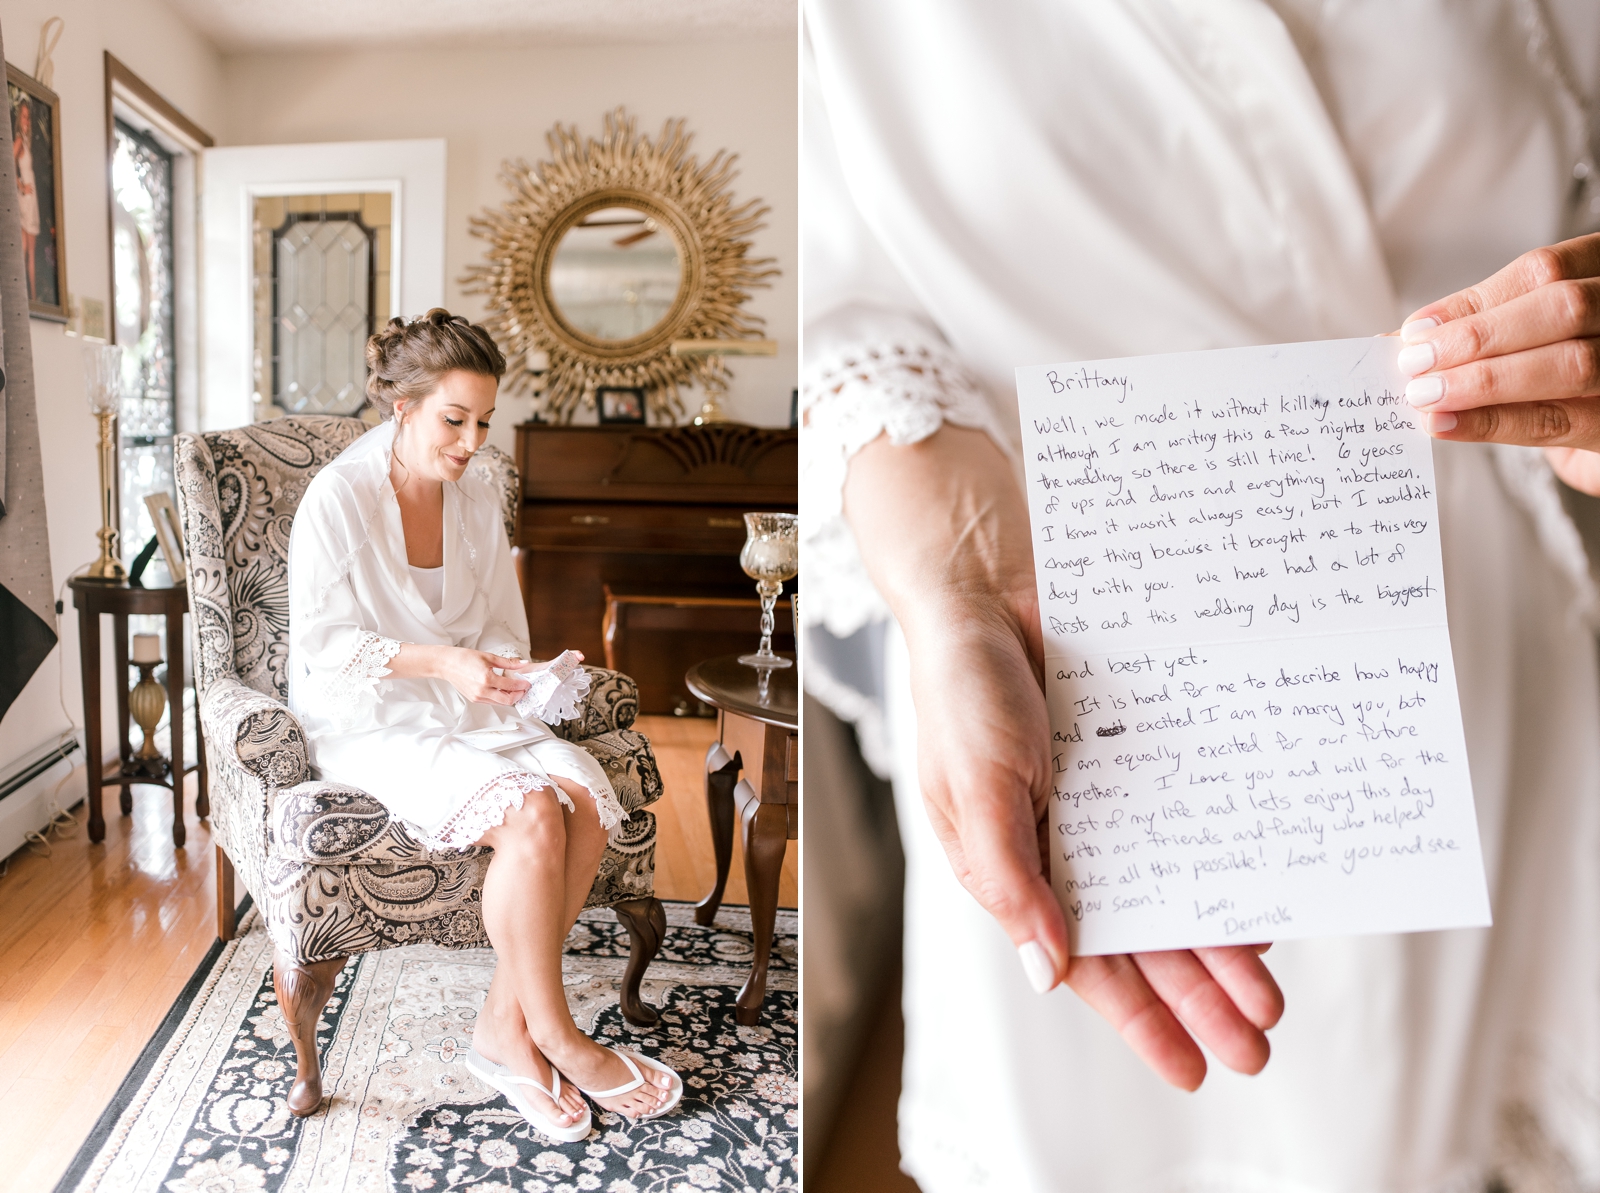 Brittany,
Well, we made it without killing each other,
although I am writing this a few nights before
the wedding so there is still time! 6 years
of ups and downs and everything inbetween.
I know it wasn't always easy, but I wouldn't
change thing because it brought me to this very
day with you. We have had a lot of
firsts and this wedding day is the biggest
and best yet.
It is hard for me to describe how happy
and excited I am to marry you, but
I am equally excited for our future
together. I Love you and will for the
rest of my life and lets enjoy this day
with our friends and family who helped
make all this possible! Love you and see
you soon!
Love,
Derrick